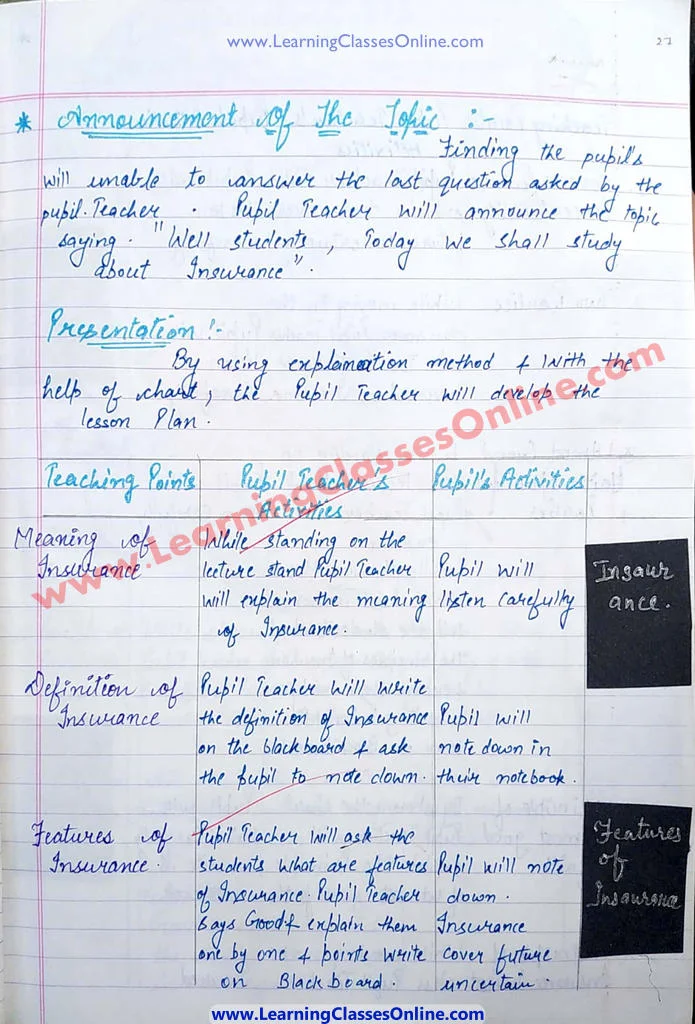 www.LearningClassesOnline.com
27
* Announcement Of The Topic :-
Finding the pupil's
will unable to answer the last question asked by the
pupil.Teacher . Pupil Teacher will announce the topic
saying. "Well students, Today we shall study
about Insurance".
Presentation:-
By using explaination method & With the
help of chart, the Pupil Teacher will develop the
lesson Plan.
www.LearningClassesOnline.com
Teaching Points Pupil Teacher's Pupil's Activities
Activities
Meaning of
Insurance
While standing on the
lecture stand Pupil Teacher
will explain the meaning
of Insurance.
Pupil will
listen carefully
Insaur
ance.
Definition of
Insurance
Pupil Teacher will write
the definition of Insurance
on the blackboard & ask
the pupil to note down.
Pupil will
note down in
their notebook.
Features of
Insurance.
Pupil Teacher will ask the
students what are features
of Insurance. Pupil Teacher
says Good & explain them
one by one & points write
on Blackboard.
Pupil will note
down.
Insurance
cover future
uncertain.
Features
of
Insaurance
www.LearningClassesOnline.com